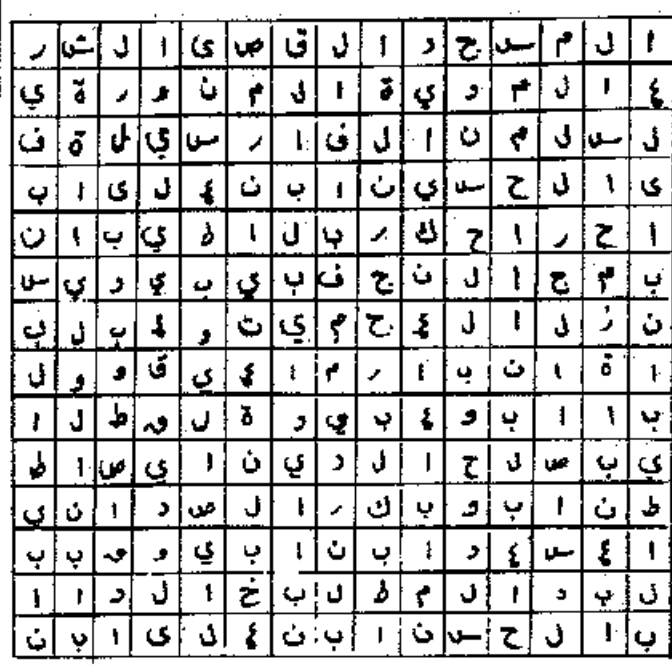 ا ل م س ج د ا ل ق ص ى ا ل ش ر
ع ا ل م د ي ة ا ل م ن و ر ة ي
ل س ل م ن ا ل ف ا ر س ي ل ة ف
ى ا ل ح س ي ن ا ب ن ع ل ى ا ب
ا ح ر ا ح ك ر ب ل ا ئ ي ب ا ن
ب م ج ا ل ن ج ف ب ي ب ي د ي س
ن ز ل ا ل ع ج م ي ن و ع ب ل ي
ا ة ا ن ب ا ر م ا ع ي ق و و ل
ب ا ا ب و ع ب ي د ة ل و ط ل ا
ي ب ص ل ح ا ل د ي ن ا ي ص ا ط
ط ن ا ب و ب ك ر ا ل ص د ا ن ي
ا ع س ع د ا ب ن ا ب ي و و ب ب
ل ب د ا ل م ط ل ب خ ا ل د ا ا
ب ا ل ح س ن ا ب ن ع ل ى ا ب ن